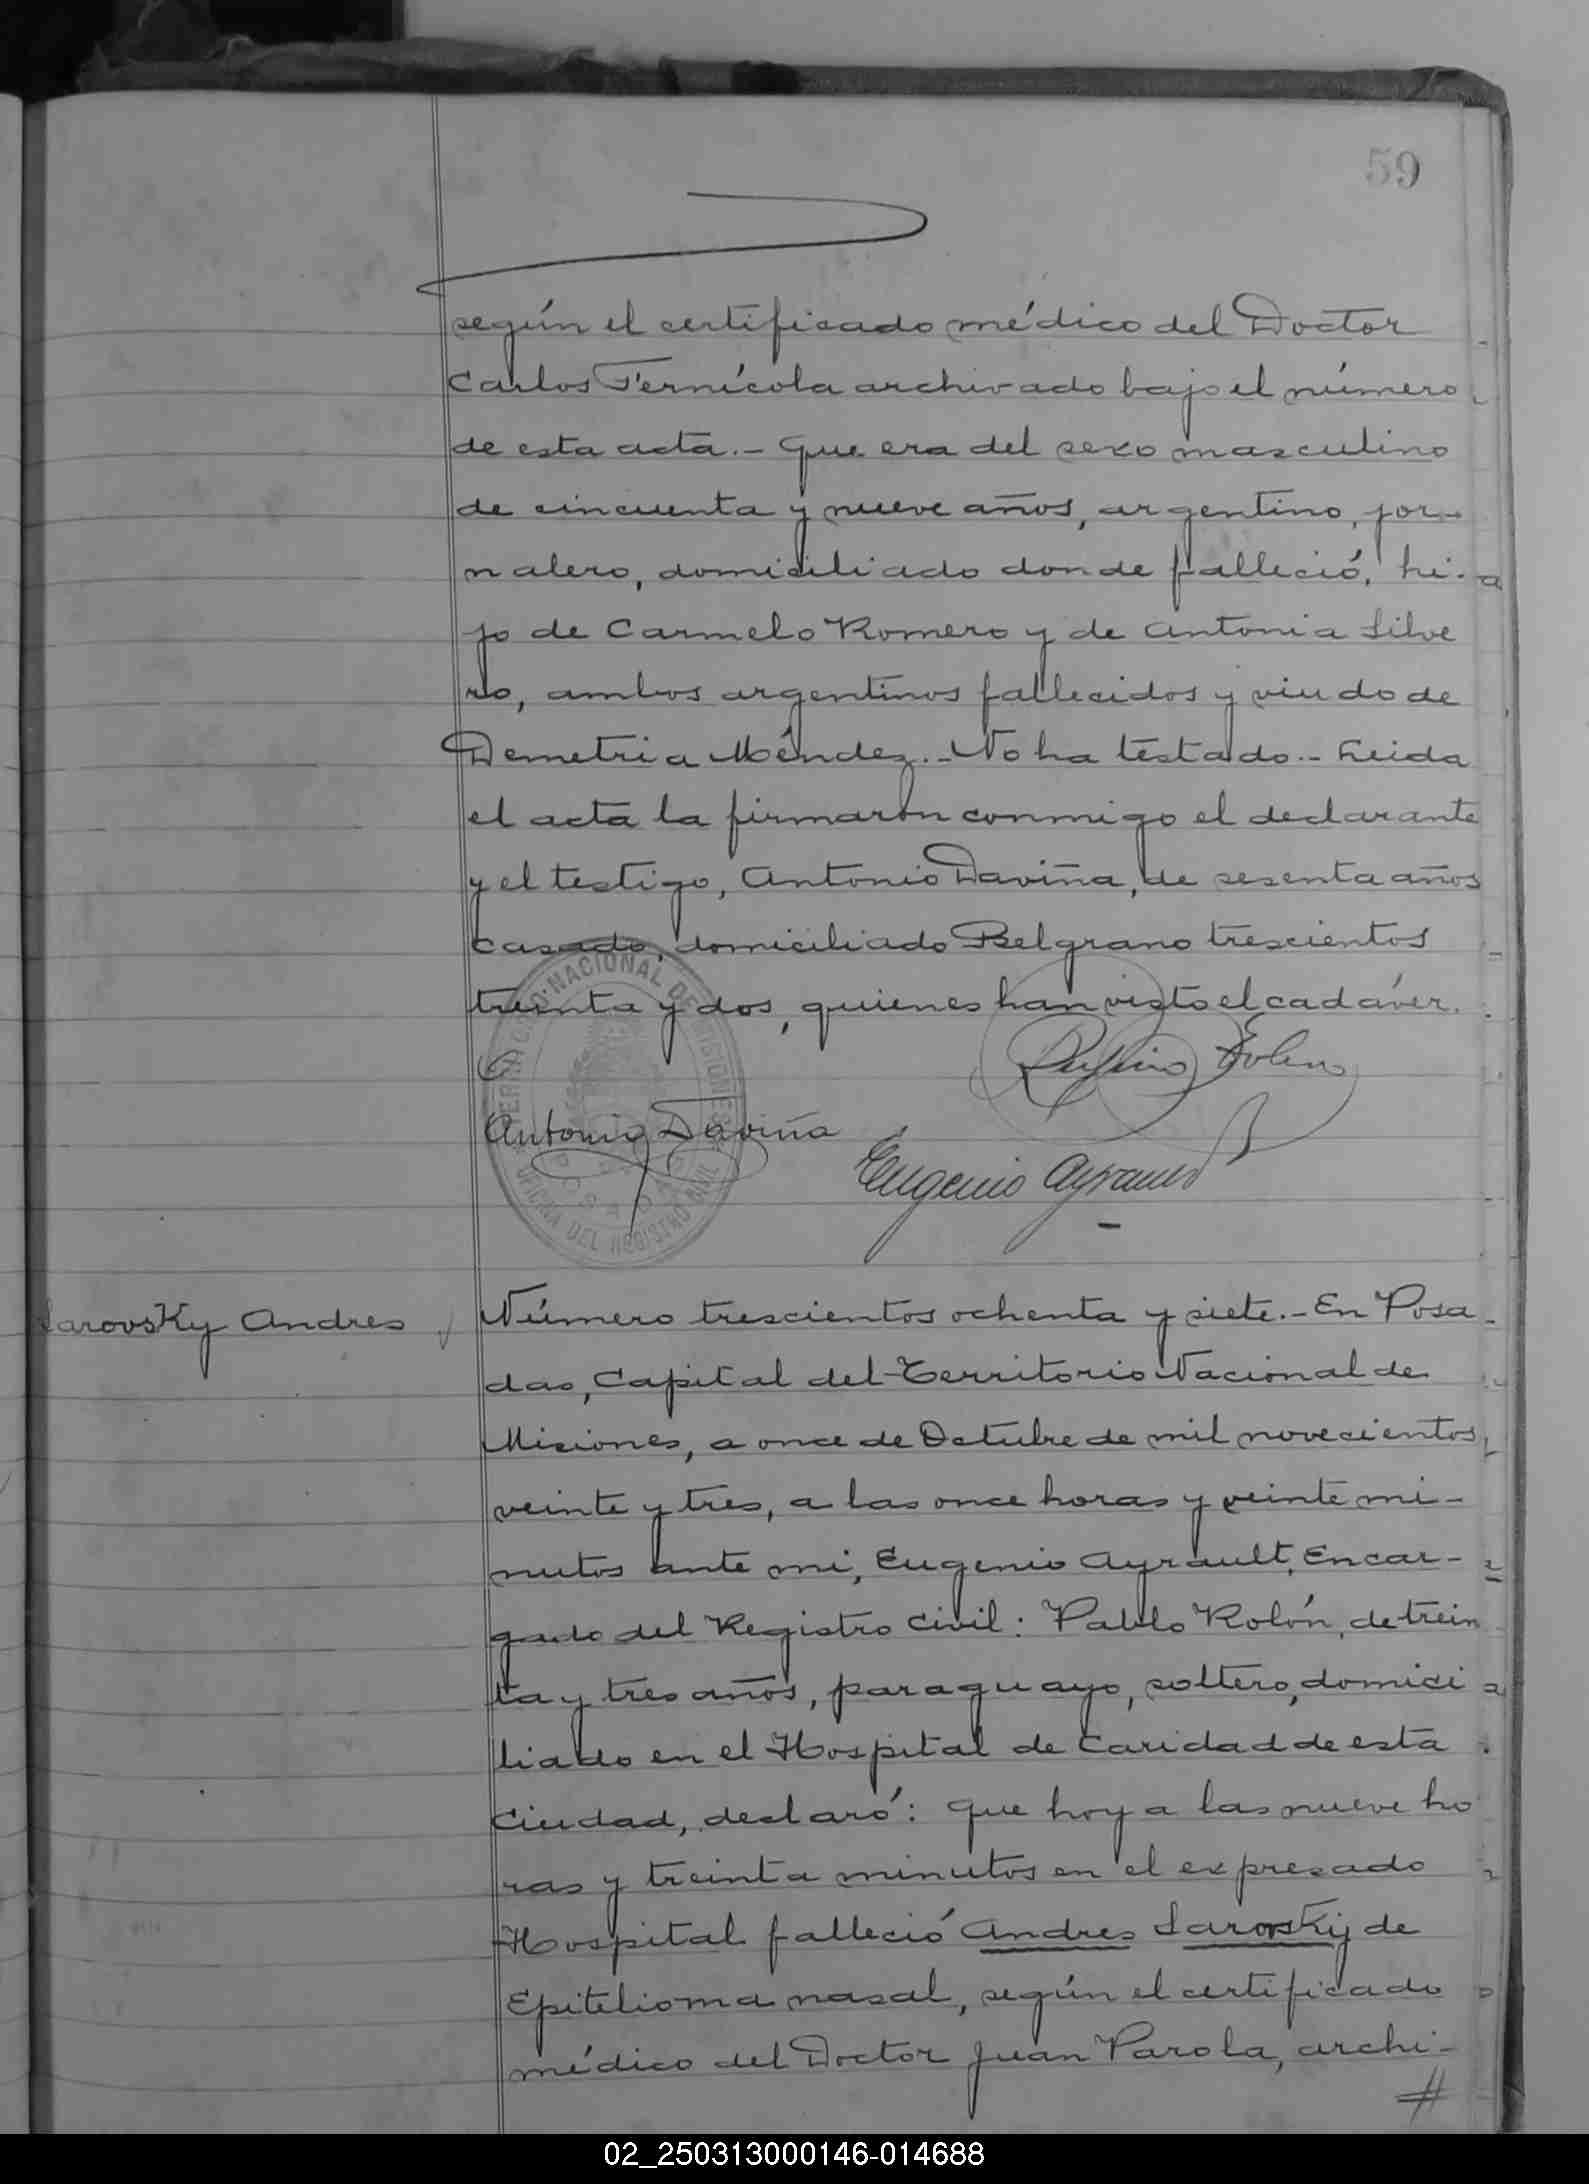 59
según el certificado médico del Doctor
Carlos Fernícola archivado bajo el número
de esta acta.- Que era del sexo masculino
de cincuenta y nueve años, argentino, jor-
nalero, domiciliado donde falleció, hi-
jo de Carmelo Romero y de Antonia Silve
ro, ambos argentinos fallecidos y viudo de
Demetria Méndez.- No ha testado.- Leida
el acta la firmaron conmigo el declarante
y el testigo, Antonio Daviña, de sesenta años
casado, domiciliado Belgrano trescientos
treinta y dos, quienes han visto el cadáver.
NACIONAL DE MISIONES
OFICINA DEL REGISTRO CIVIL
POSADAS
Antonio Daviña
Eugenio Ayrault
Larovsky Andres
Número trescientos ochenta y siete.- En Posa
das, Capital del Territorio Nacional de
Misiones, a once de Octubre de mil novecientos
veinte y tres, a las once horas y veinte mi-
nutos ante mi, Eugenio Ayrault, Encar-
gado del Registro Civil: Pablo Rolón, de trein
ta y tres años, paraguayo, soltero, domici
liado en el Hospital de Caridad de esta
Ciudad, declaró: Que hoy a las nueve ho
ras y treinta minutos en el expresado
Hospital falleció Andres Larovsky de
Epitelioma nasal, según el certificado
médico del Doctor Juan Parola, archi-
02_250313000146-014688